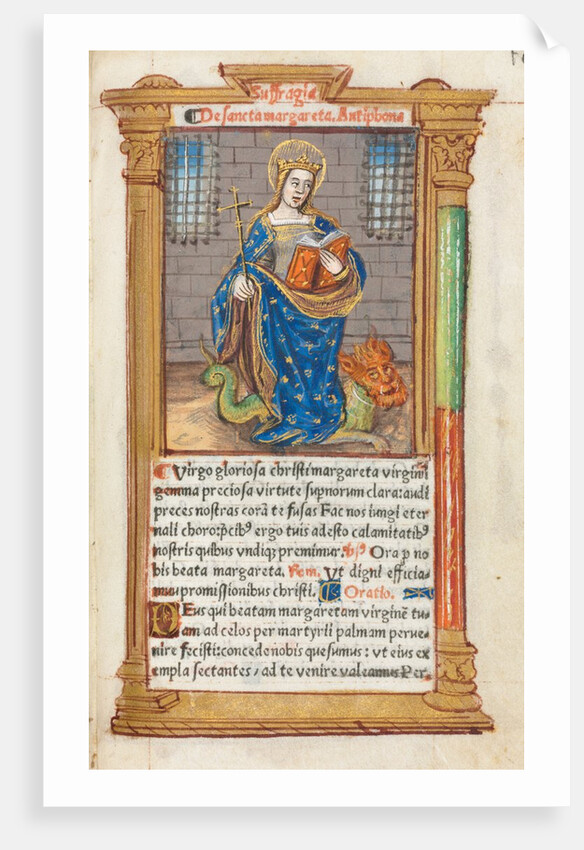 Suffragia
De sancta margareta. Antiphona
Virgo gloriosa christi margareta virginū
gemma preciosa virtute supnorum clara: audi
preces nostras corā te fusas Fac nos iungi eter
nali choro: p̄cibꝰ ergo tuis adesto calamitatibꝰ
nostris quibus vndiqꝫ premimur. Ora p̲ no
bis beata margareta. Rem. Vt digni efficia-
mur promissionibus christi. Oratio.
Deus qui beatam margaretam virginē tu-
am ad celos per martyrii palmam perue-
nire fecisti: concede nobis quesumus: vt eius ex
empla sectantes / ad te venire valeamus Per-